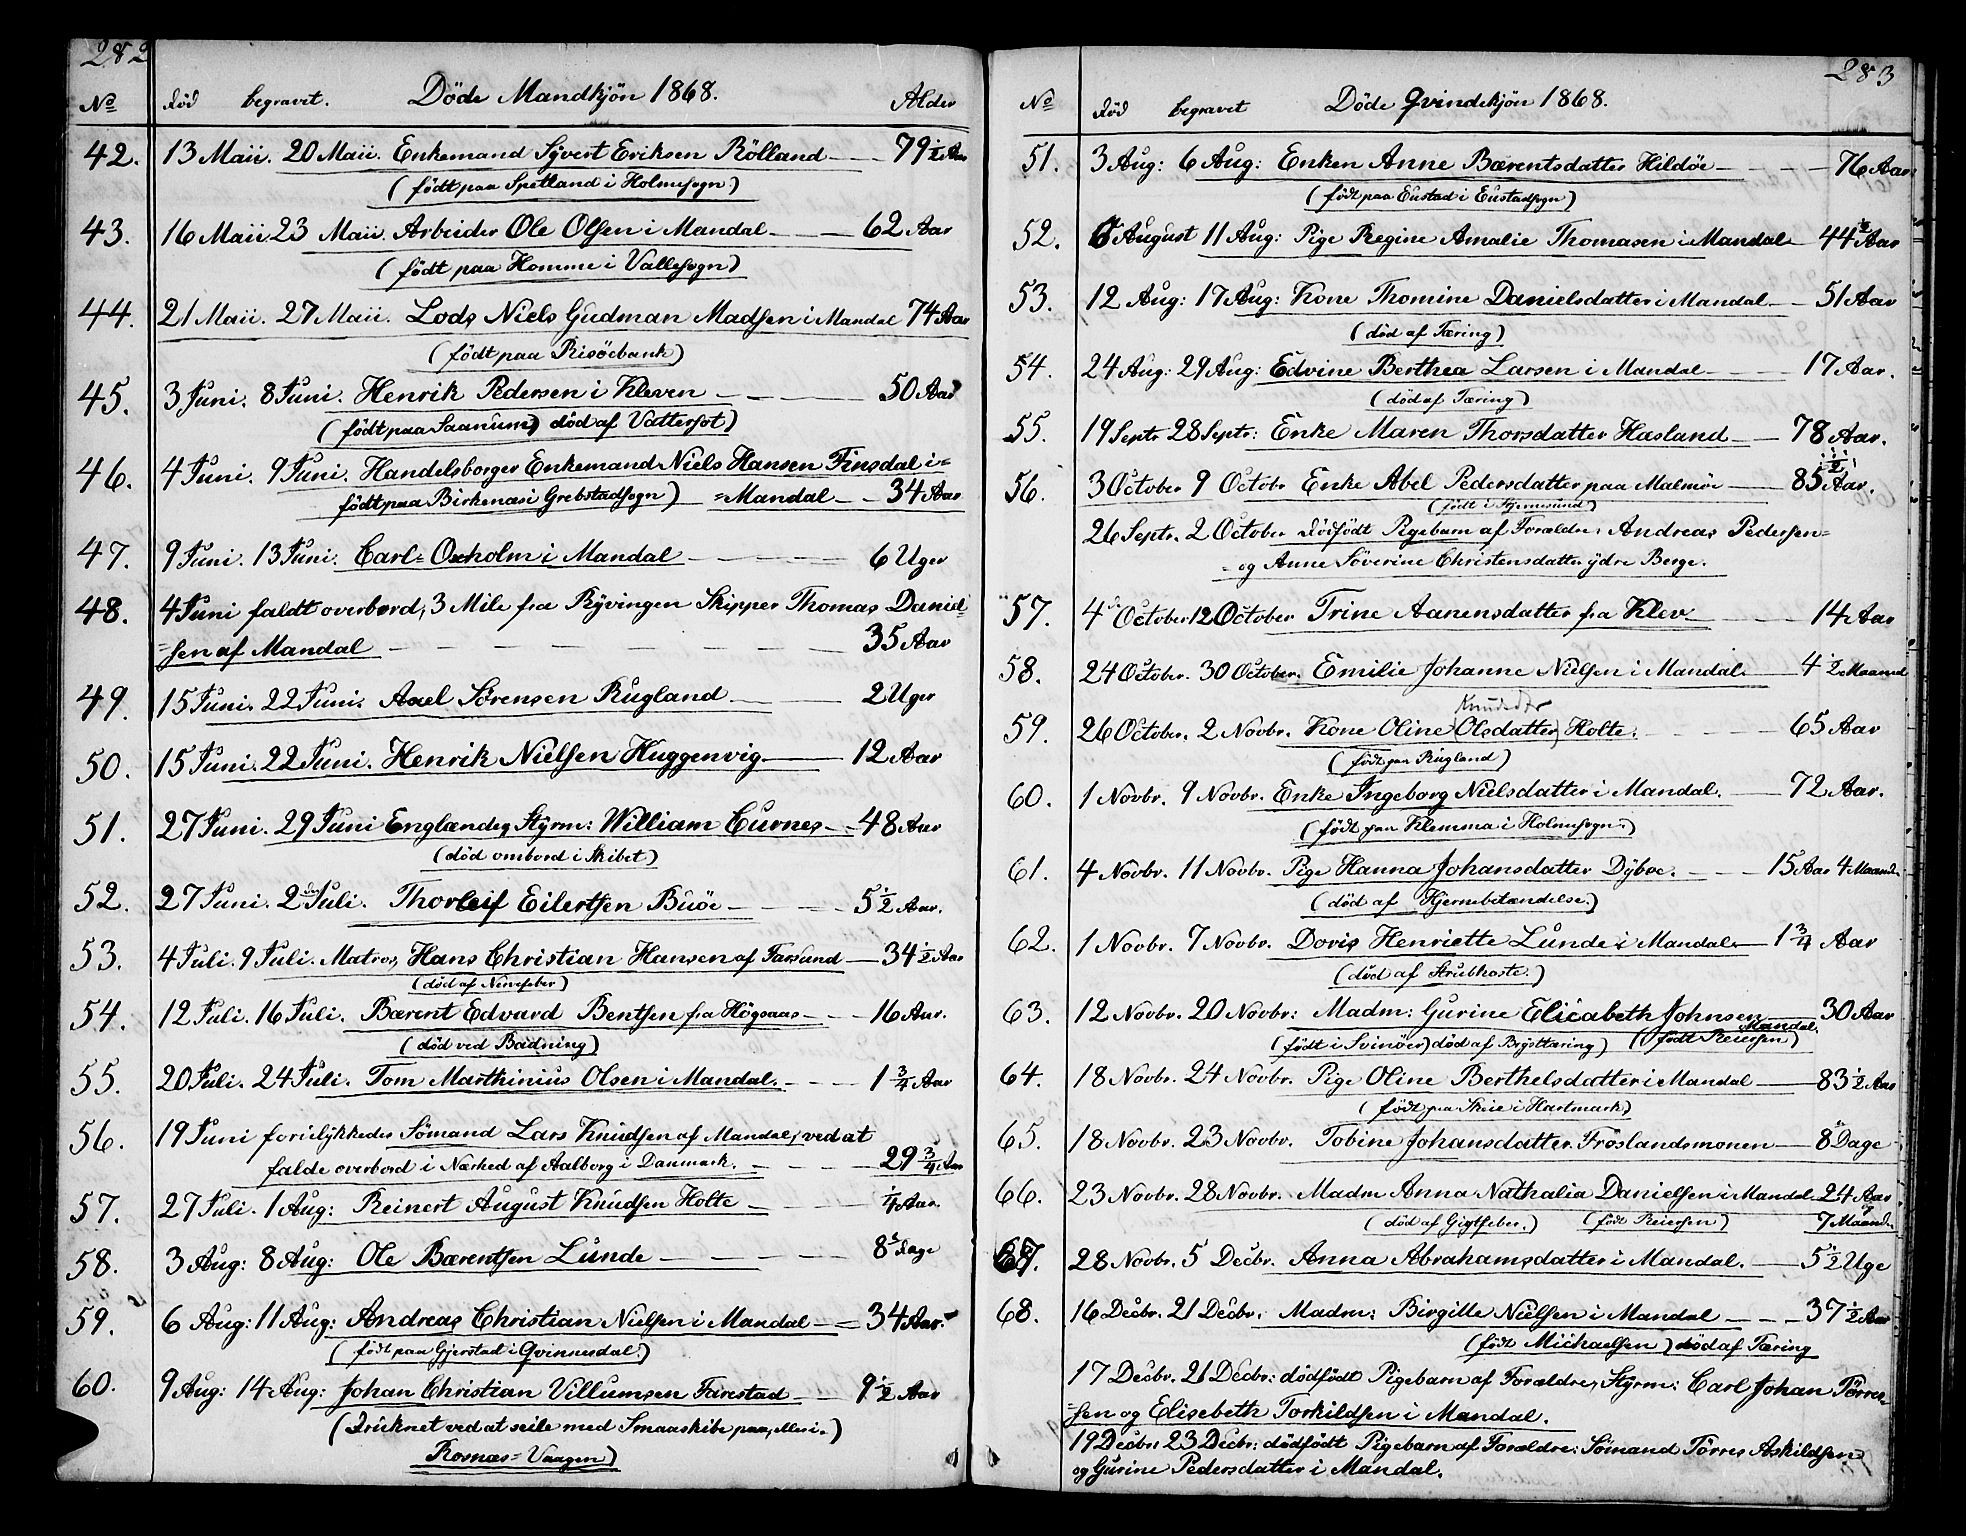 282
No død begravet. Döde Mandkjön 1868. Alder
42. 13 Maii. 20 Maii. Enkemand Syvert Eriksen Rölland 79 1/2 Aar
(födt paa Spetland i Holmesogn)
43. 16 Maii 23 Maii. Arbeider Ole Olsen i Mandal 62 Aar
(födt paa Homme i Vallesogn)
44. 21 Maii. 27 Maii. Lods Niels Gudman Madsen i Mandal 74 Aar
(födt paa Risöebank)
45. 3 Juni. 8 Juni. Henrik Pedersen i Kleven 50 Aar
(födt paa Saanum) död af Vattersot)
46. 4 Juni. 9 Juni. Handelsborger Enkemand Niels Hansen Finsdal i=
födt paa Birkenæs i Grebstadsogn) =Mandal 34 Aar
47. 9 Juni. 13 Juni. Carl=Oxholm i Mandal 6 Uger
48. 4 Juni faldt overbord, 3 Mile fra Ryvingen Skipper Thomas Daniel
=sen af Mandal 35 Aar
49. 15 Juni. 22 Juni. Axel Sørensen Rugland 2 Uger
50. 15 Juni. 22 Juni. Henrik Nielsen Huggenvig 12 Aar
51. 27 Juni. 29 Juni Englænder, Styrm: William Curnes 48 Aar
(död ombord i Skibet)
52. 27 Juni. 2den Juli. Thorleif Eilertsen Buöe 5 1/2 Aar.
53. 4 Juli. 9 Juli. Matros, Hans Christian Hansen af Farsund 34 1/2 Aar
(död af Nervefeber)
54. 12 Juli. 16 Juli. Bærent Edvard Bentsen fra Högsaas 16 Aar.
(död ved Badning)
55. 20 Juli. 24 Juli. Tom Marthinius Olsen i Mandal. 1 3/4 Aar
56. 19 Juni forulykkedes Sömand Lars Knudsen af Mandal, ved at
falde overbord i Nærhed af Aalborg i Danmark. 29 3/4 Aar
57. 27 Juli. 1 Aug: Reinert August Knudsen Holte 1/4 Aar.
58. 3 Aug: 8 Aug: Ole Bærentsen Lunde 8 Dage
59. 6 Aug: 11 Aug: Andreas Christian Nielsen i Mandal 34 Aar.
(födt paa Gjerstad i Qvinnesdal.)
60. 9 Aug: 14 Aug: Johan Christian Villumsen Farestad 9 1/2 Aar
(Druknet ved at seile med Smaaskibe paa,
Rosnæs=Vaagen)
283
No død begravet Döde Qvindekjön 1868.
51. 3 Aug: 6 Aug: Enken Anne Bærentsdatter Hildöe 76 Aar:
(födt paa Eustad i Eustadsogn)
52. 6 August 11 Aug: Pige Regine Amalie Thomasen i Mandal 44 1/2 Aar
53. 12 Aug: 17 Aug: Kone Thomine Danielsdatter i Mandal 51 Aar
(död af Tæring)
54. 24 Aug: 29 Aug: Edvine Berthea Larsen i Mandal 17 Aar.
(död af Tæring)
55. 19 Septr. 28 Septr: Enke Maren Thorsdatter Hasland 78 Aar.
56. 3 October 9 Octobr Enke Abel Pedersdatter paa Malmöe 85 1/2 Aar.
(födt i Hjemesund)
26 Septr. 2 October Dödfödt Pigebarn af Forældre, Andreas Pedersen=
=og Anne Söverine Christensdatter ydre Berge.
57. 4de October 12 October Trine Aanensdatter fra Klev 14 Aar
58. 24 October. 30 October. Emilie Johanne Nielsen i Mandal 4 1/2 Maaned
Knudsdtr
59. 26 October. 2 Novbr. Kone Oline (Olsdatter) Holte. 65 Aar
(födt paa Rugland)
60. 1 Novbr. 9 Novbr. Enke Ingeborg Nielsdatter i Mandal. 72 Aar.
(födt paa Klemma i Holmesogn.)
61. 4 Novbr. 11 Novbr. Pige Hanna Johansdatter Dyboe. 15 Aar 4 Maand.
(död af Hjernebetændelse.)
62. 1 Novbr. 7 Novbr. Doris Henriette Lunde i Mandal 1 3/4 Aar
(död af Strubhoste.)
63. 12 Novbr. 20 Novbr: Madm: Gurine Elisabeth Johnsen 30 Aar
Mandal.
(födt i Svinöer) död af Brysttæring) (födt Reiersen)
64. 18 Novbr. 24 Novbr. Pige Oline Berthelsdatter i Mandal 83 1/2 Aar
(födt paa Skeie i Hartmark)
65. 18 Novbr. 23 Novbr. Tobine Johansdatter Fröslandsmonen 8 Dage
66. 23 Novbr. 28 Novbr. Madm Anna Nathalia Danielsen i Mandal 24 Aar
og
(död af Gigtfeber.) (födt Reiersen) 7 Maand.
67. 28 Novbr. 5 Decbr. Anna Abrahamsdatter i Mandal. 5 1/2 Uge
68. 16 Decbr. 21 Decbr. Madm: Birgitte Nielsen i Mandal 37 1/2 Aar
(födt Michaelsen) död af Tæring
17 Decbr. 21 Decbr: dödfödt Pigebarn af Forældre, Styrm: Carl Johan Törres
=sen og Elisebeth Torkildsen i Mandal.
19 Decbr. 23 Decbr: dödfödt Pigebarn af Forældre: Sömand Törres Askildsen
og Gurine Pedersdatter i Mandal.